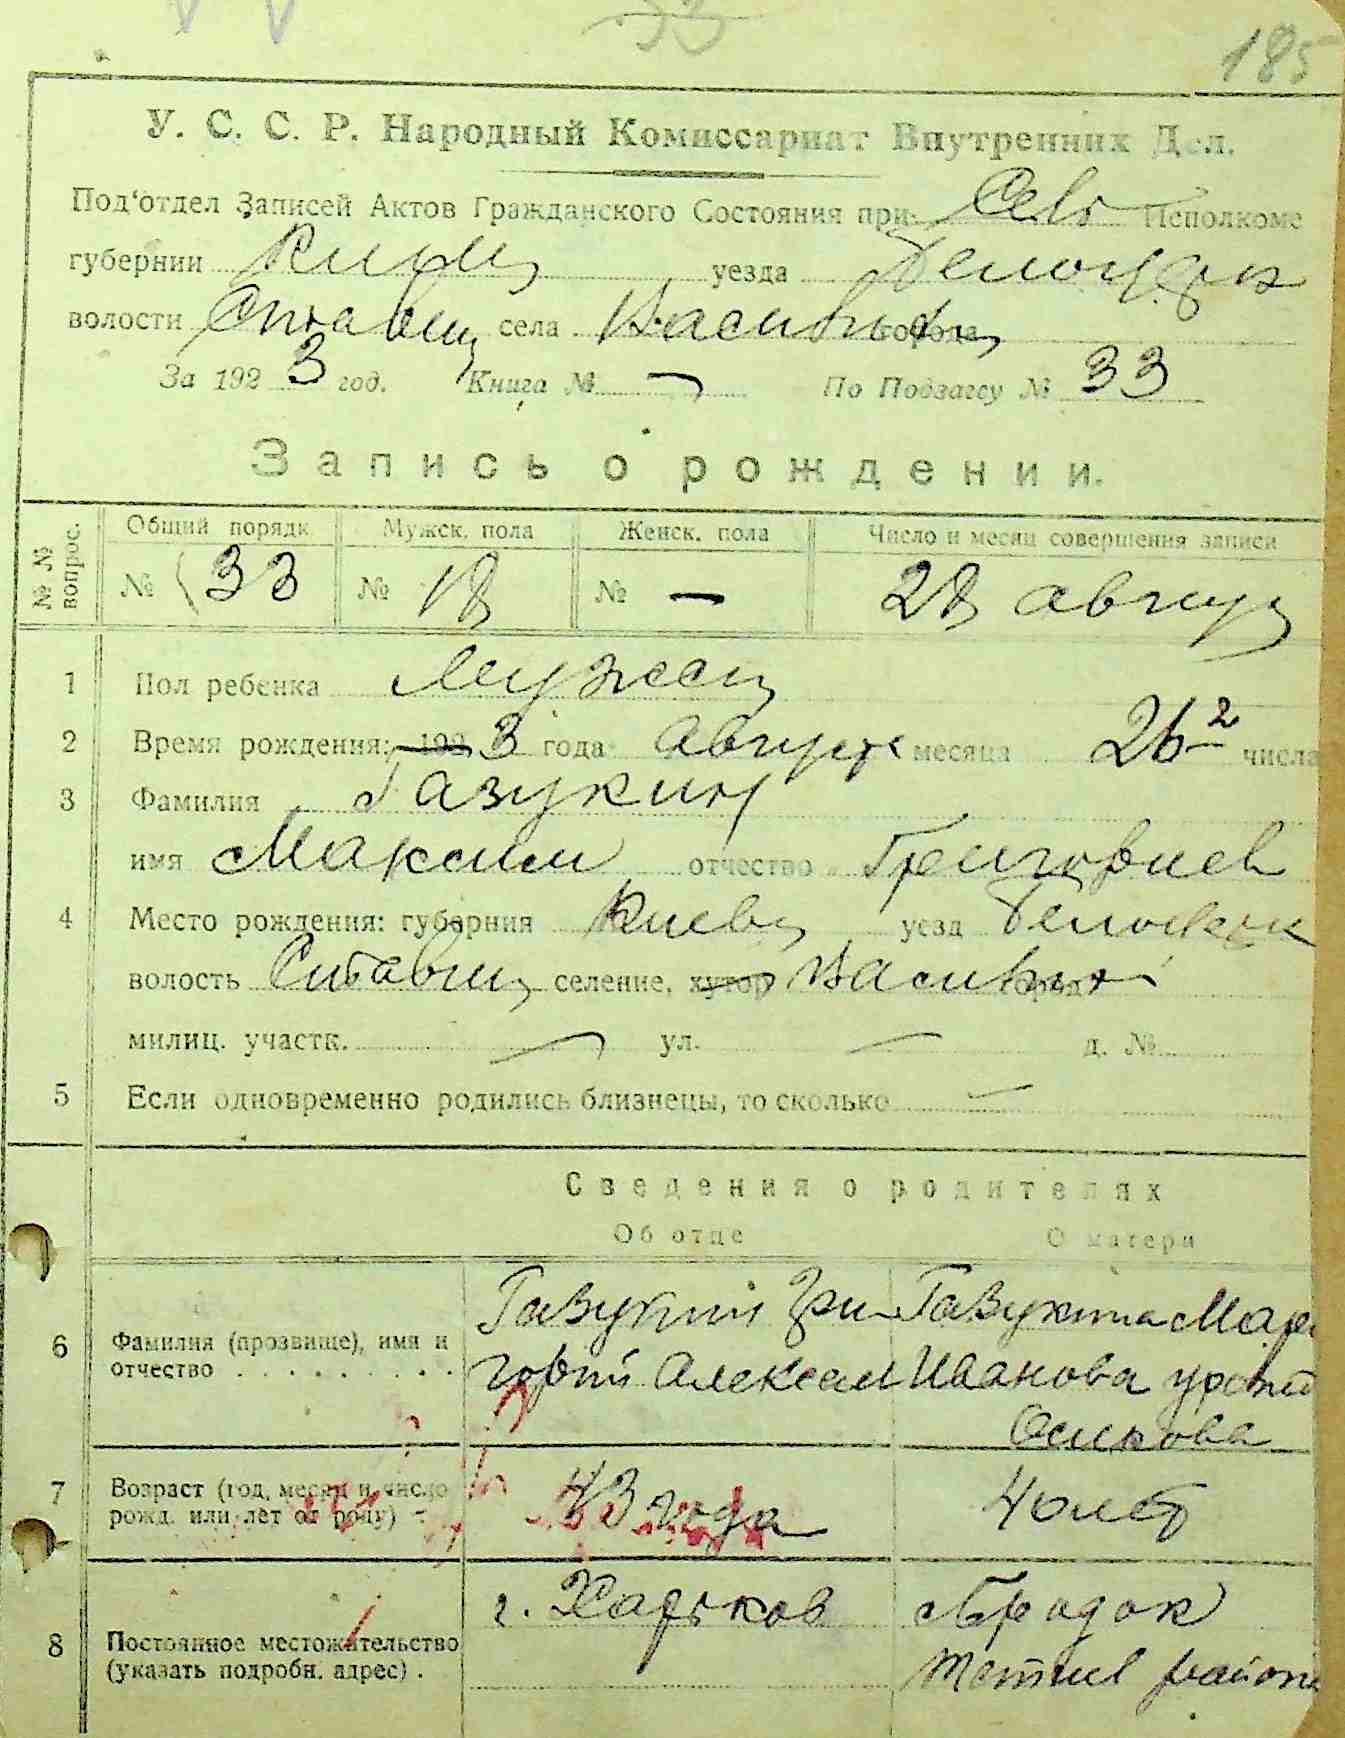 33
185
У. С. С. Р. Народный Комиссариат Внутренних Дел.
Под'отдел Записей Актов Гражданского Состояния при Сель Исполкоме
губернии уезда Белоцерк
волости Ставищ села города
За 1923 год. Книга № — По Подзагсу № 33
Запись о рождении.
№ № вопрос. Общий порядк Мужск. пола Женск. пола Число и месяц совершения записи
№ 33 № 18 № — 28 август
1 Пол ребенка Мужеск
2 Время рождения: 1923 года август месяца 26 числа
3 Фамилия Газукин
имя Максим отчество Григориев
4 Место рождения: губерния Киевц уезд Белоцерк
волость Ставищ селение, хутор город
милиц. участк. — ул. — д. №
5 Если одновременно родились близнецы, то сколько —
Сведения о родителях
Об отце О матери
6 Фамилия (прозвище), имя и отчество
Газукин Гри-
горий Алексеев
Газукина Мари
Иванова урожд
Осипова
7 Возраст (год, месяц и число рожд. или лет от роду)
43 года 40 лет
8 Постоянное местожительство (указать подробн. адрес).
г. Харьков
района